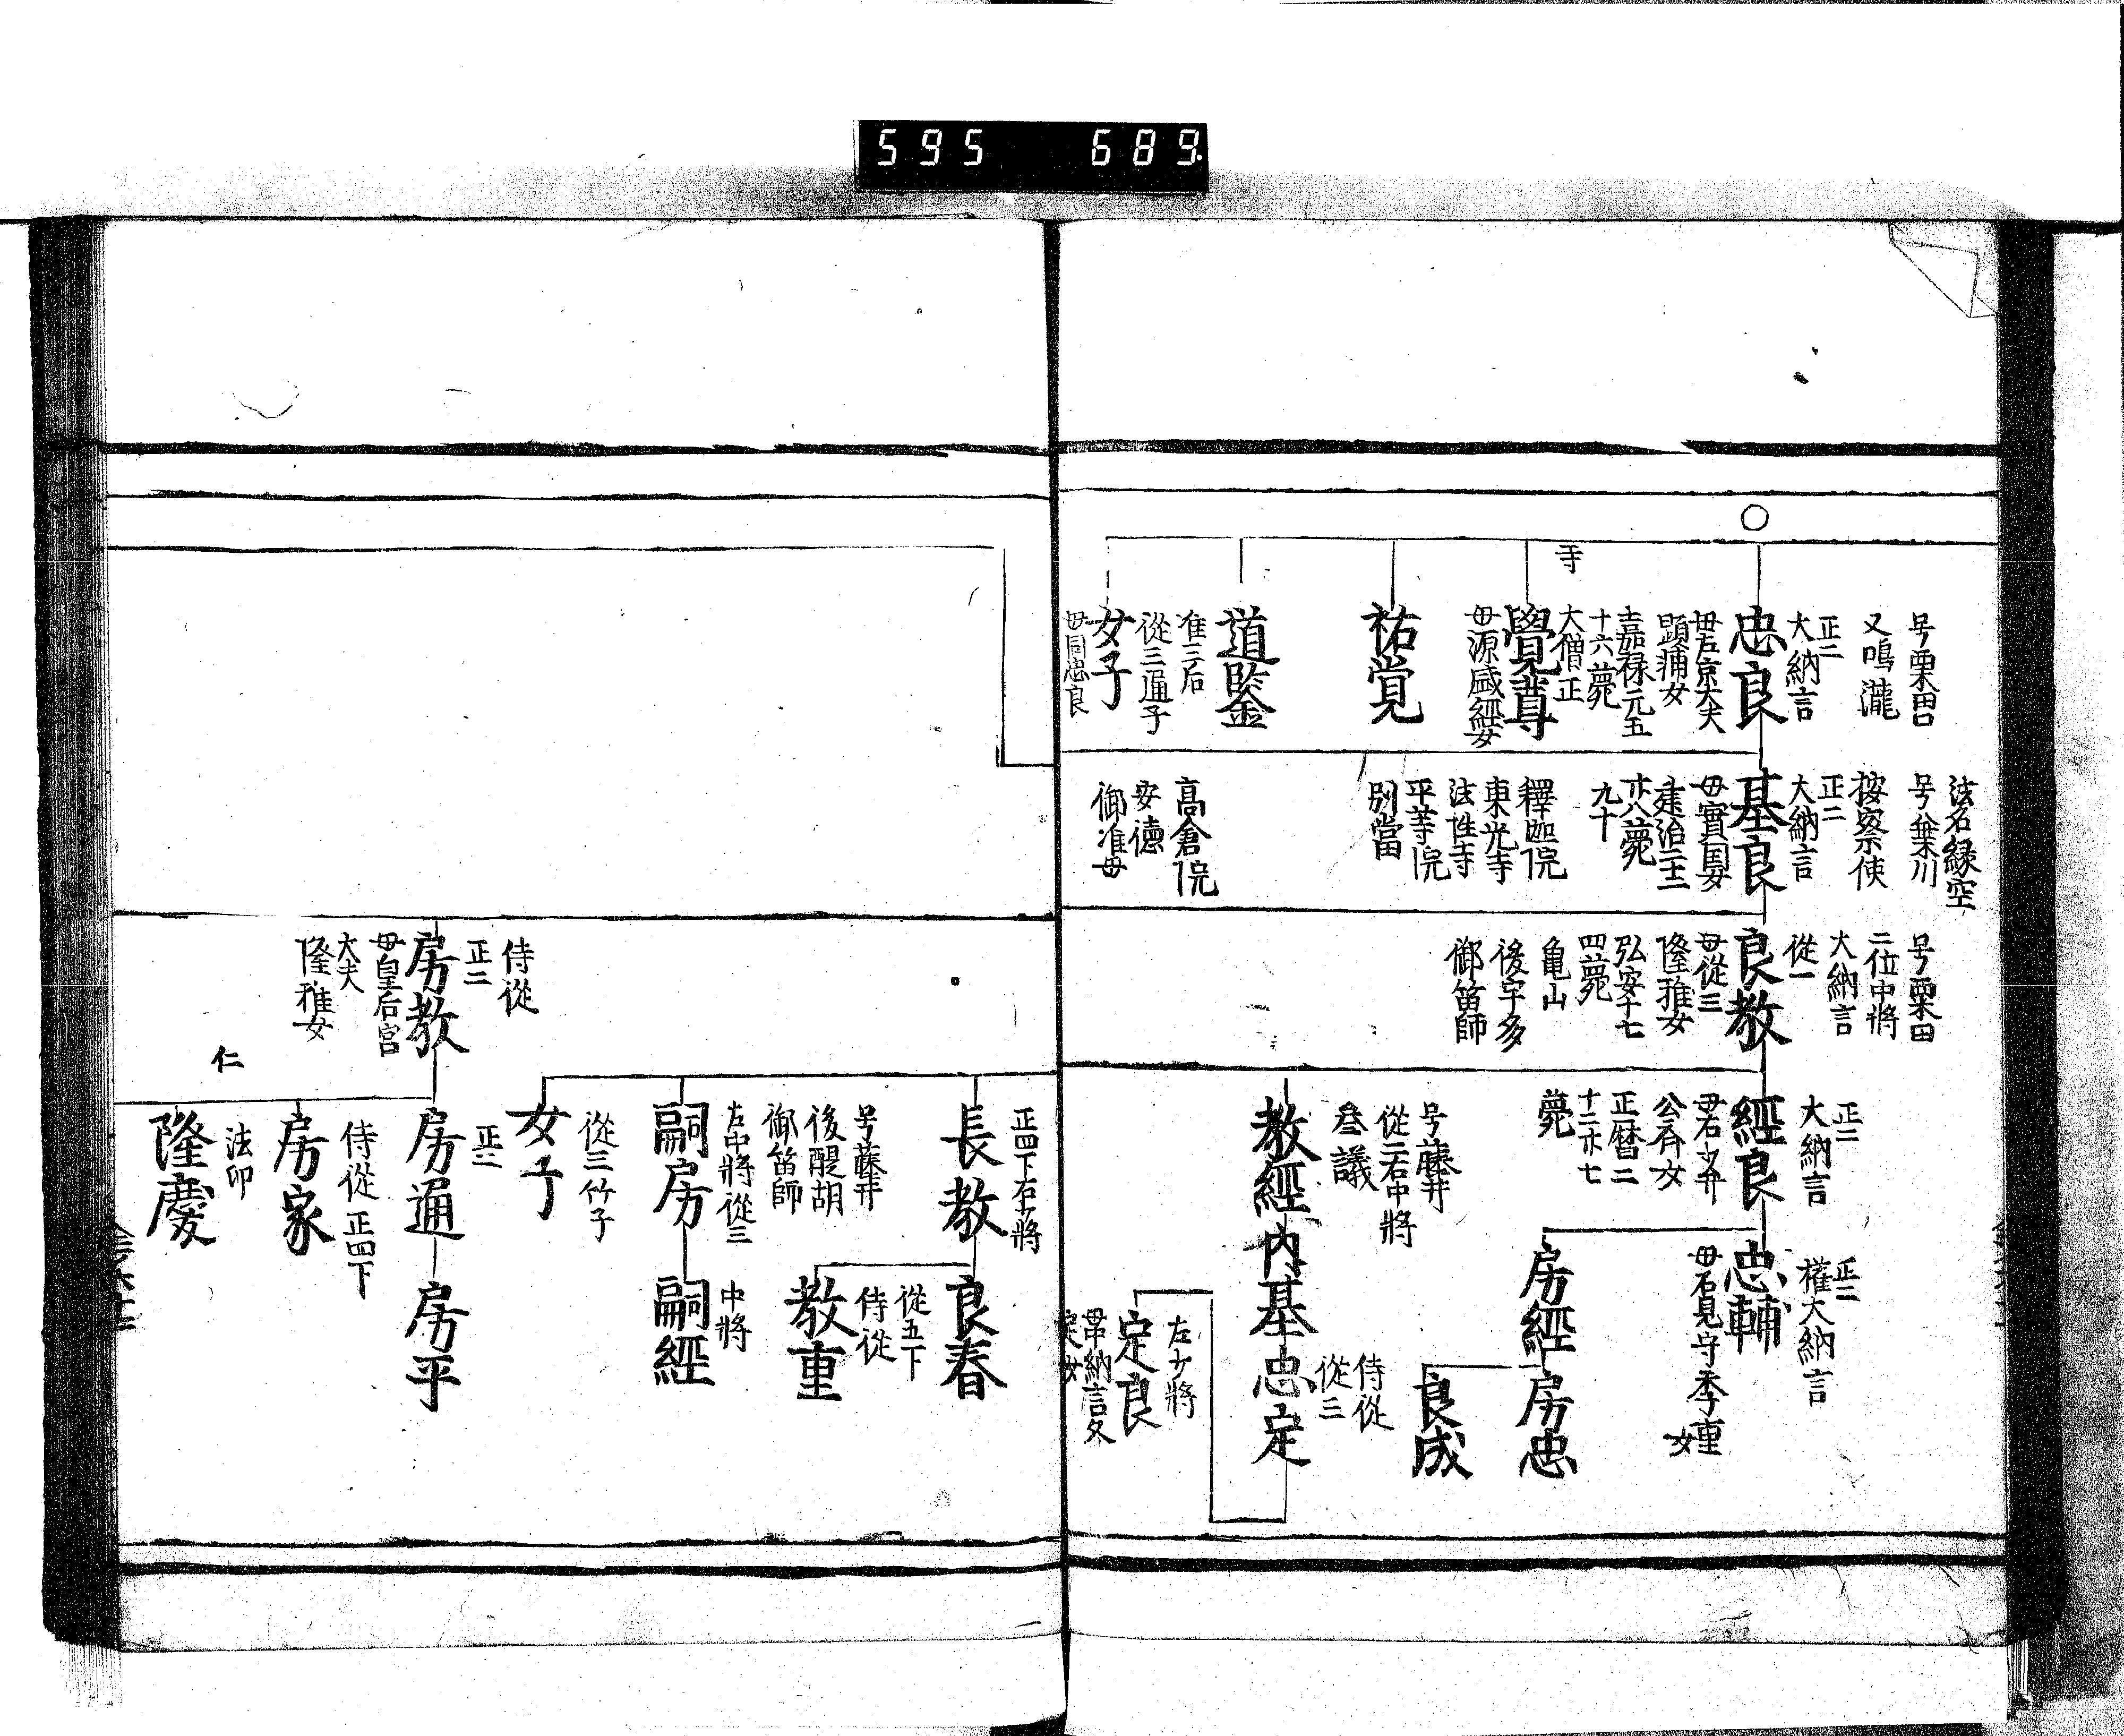 595 689
号粟田口
又鳴瀧
正二
大納言
忠良
母左京大夫
顕輔女
嘉禄元五
十六薨
寺
大僧正
覺尊
母源盛經女
祐覚
道鑒
准三后
從三通子
女子
母同忠良
法名緑空
号粟川
按察使
正二
大納言
基良
母實国女
建治二十二
廿八薨
九十
釋迦院
東光寺
法性寺
平等院
別當
高倉院
安德
御准母
号粟田
二位中將
大納言
從一
良教
母從三
隆雅女
弘安十七
四薨
亀山
後宇多
御笛師
正二
大納言
經良
母右少弁
公斉女
正暦二
十二廿七
薨
号藤井
從二右中將
叄議
教經
内基
忠定
侍從
從三
正二
權大納言
忠輔
母石見守季重
女
房經
房忠
良成
左少將
定良
正四下右少將
長教
良春
号藤井
後醍胡
御笛師
從五下
侍從
教重
左中將從三
嗣房
中將
嗣經
從三竹子
女子
侍從
正二
房教
母皇后宮
大夫
隆雅女
正二
房通
房平
侍從正四下
房家
仁
法印
隆慶